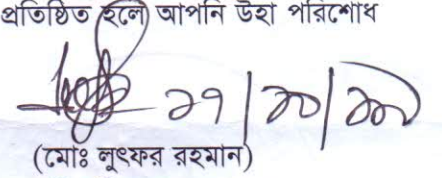 প্রতিষ্ঠিত হলে আপনি উহা পরিশোধ
(মোঃ লুৎফর রহমান)